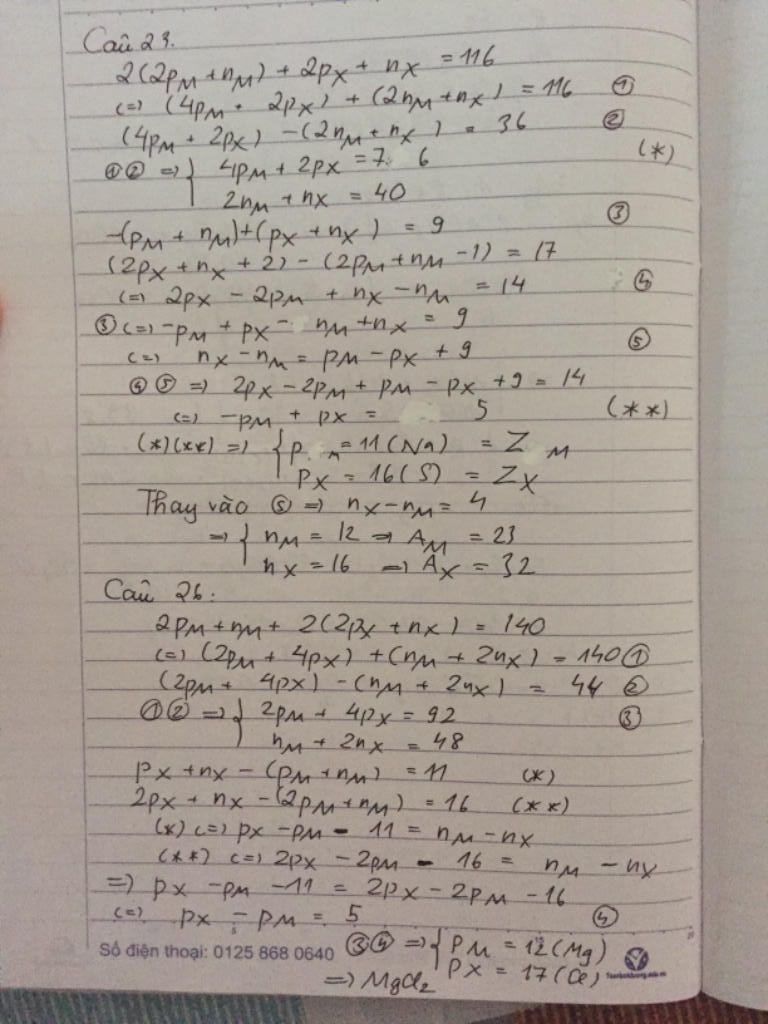 Câu 23.
2(2pM + nM) + 2pX + nX = 116
<=> (4pM + 2pX) + (2nM + nX) = 116 ①
(4pM + 2pX) - (2nM + nX) = 36 ②
①② => { 4pM + 2pX = 76 (*)
2nM + nX = 40
-(pM + nM) + (pX + nX) = 9 ③
(2pX + nX + 2) - (2pM + nM - 1) = 17
<=> 2pX - 2pM + nX - nM = 14 ④
③ <=> -pM + pX - nM + nX = 9
<=> nX - nM = pM - pX + 9 ⑤
④⑤ => 2pX - 2pM + pM - pX + 9 = 14
<=> -pM + pX = 5 (**)
(*)(**) => { pM = 11 (Na) = ZM
pX = 16 (S) = ZX
Thay vào ⑤ => nX - nM = 4
=> { nM = 12 => AM = 23
nX = 16 => AX = 32
Câu 26:
2pM + nM + 2(2pX + nX) = 140
<=> (2pM + 4pX) + (nM + 2nX) = 140 ①
(2pM + 4pX) - (nM + 2nX) = 44 ②
①② => { 2pM + 4pX = 92 ③
nM + 2nX = 48
pX + nX - (pM + nM) = 11 (*)
2pX + nX - (2pM + nM) = 16 (**)
(*) <=> pX - pM - 11 = nM - nX
(**) <=> 2pX - 2pM - 16 = nM - nX
=> pX - pM - 11 = 2pX - 2pM - 16
<=> pX - pM = 5 ④
③④ => { pM = 12 (Mg)
pX = 17 (Cl)
=> MgCl2
Số điện thoại: 0125 868 0640